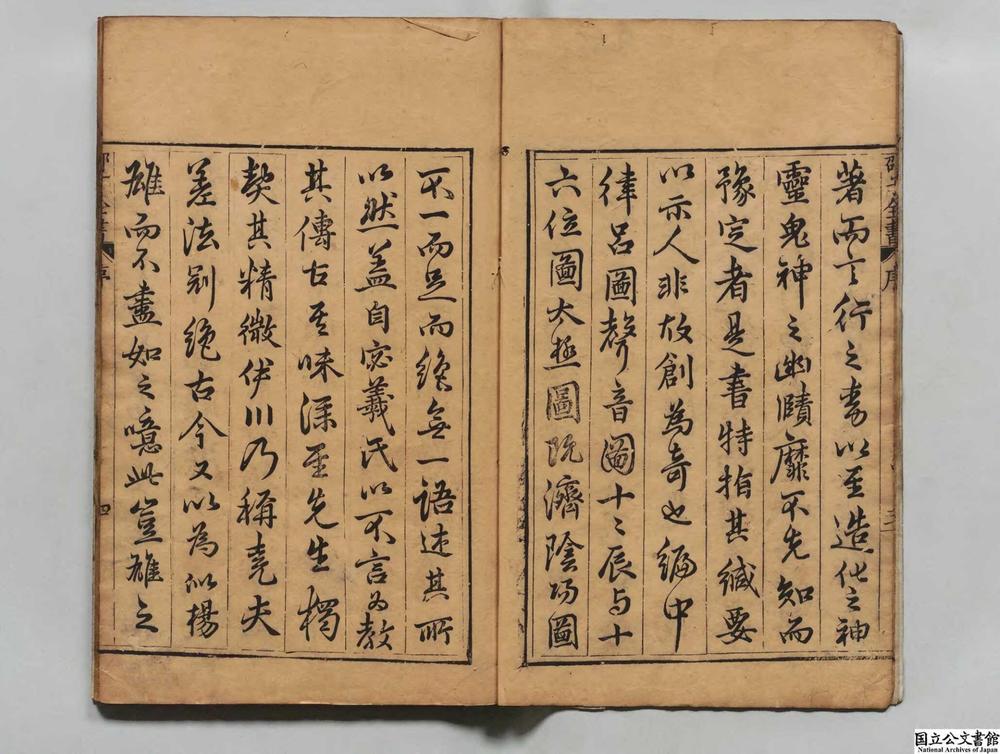 著而言行之素以至造化之神
靈鬼神之幽賾靡不先知而
豫定者是書特指其緘要
以示人非故創為奇也編中
律呂圖聲音圖十二辰与十
六位圖太極圖既濟陰陽圖
不一而足而終無一語述其所
以然蓋自宓羲氏以不言為教
其傳古其味深至先生獨
契其精微伊川乃稱堯夫
差法冠絕古今又以為似楊
雄而不盡如之噫此豈雄之
邵子全書
序
三
邵子全書
序
四
国立公文書館
National Archives of Japan